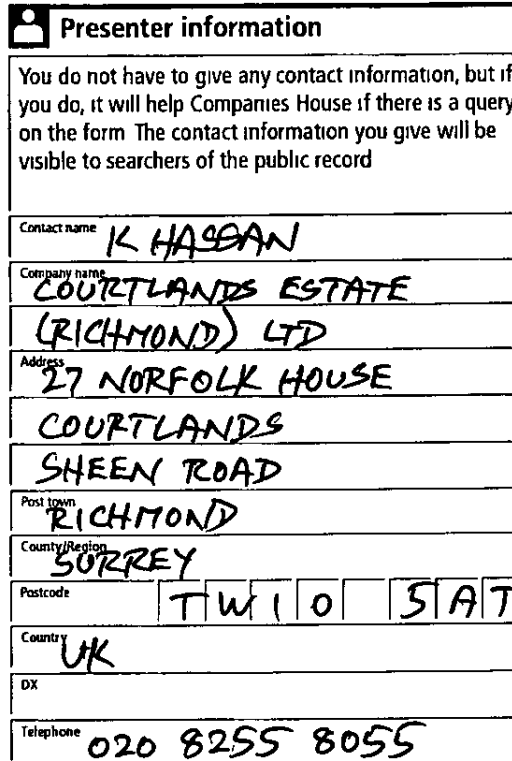 Presenter information
You do not have to give any contact information, but if
you do, it will help Companies House if there is a query
on the form The contact information you give will be
visible to searchers of the public record
Contact name K HASSAN
Company name COURTLANDS ESTATE
(RICHMOND) LTD
Address 27 NORFOLK HOUSE
COURTLANDS
SHEEN ROAD
Post town RICHMOND
County/Region SURREY
Postcode TW10 5AT
Country UK
DX
Telephone 020 8255 8055